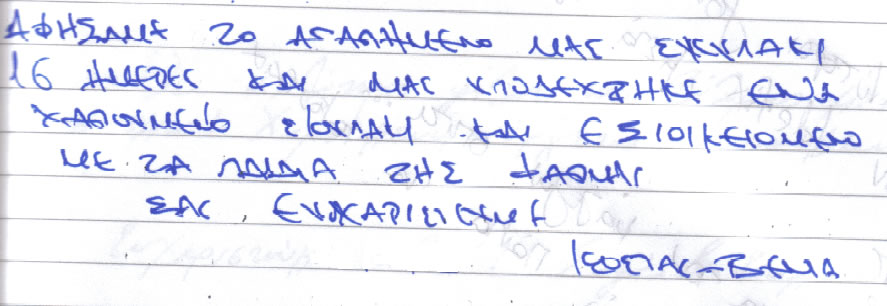 ΑΦΗΣΑΜΕ ΤΟ ΑΓΑΠΗΜΕΝΟ ΜΑΣ ΣΚΥΛΑΚΙ
16 ΗΜΕΡΕΣ ΚΑΙ ΜΑΣ ΥΠΟΔΕΧΤΗΚΕ ΕΝΑ
ΧΑΡΟΥΜΕΝΟ ΣΚΥΛΑΚΙ ΚΑΙ ΕΞΟΙΚΕΙΟΜΕΝΟ
ΜΕ ΤΑ ΠΑΙΔΙΑ ΤΗΣ ΦΑΡΜΑΣ
ΣΑΣ ΕΥΧΑΡΙΣΤΟΥΜΕ
ΚΩΣΤΑΣ-ΒΕΝΙΑ